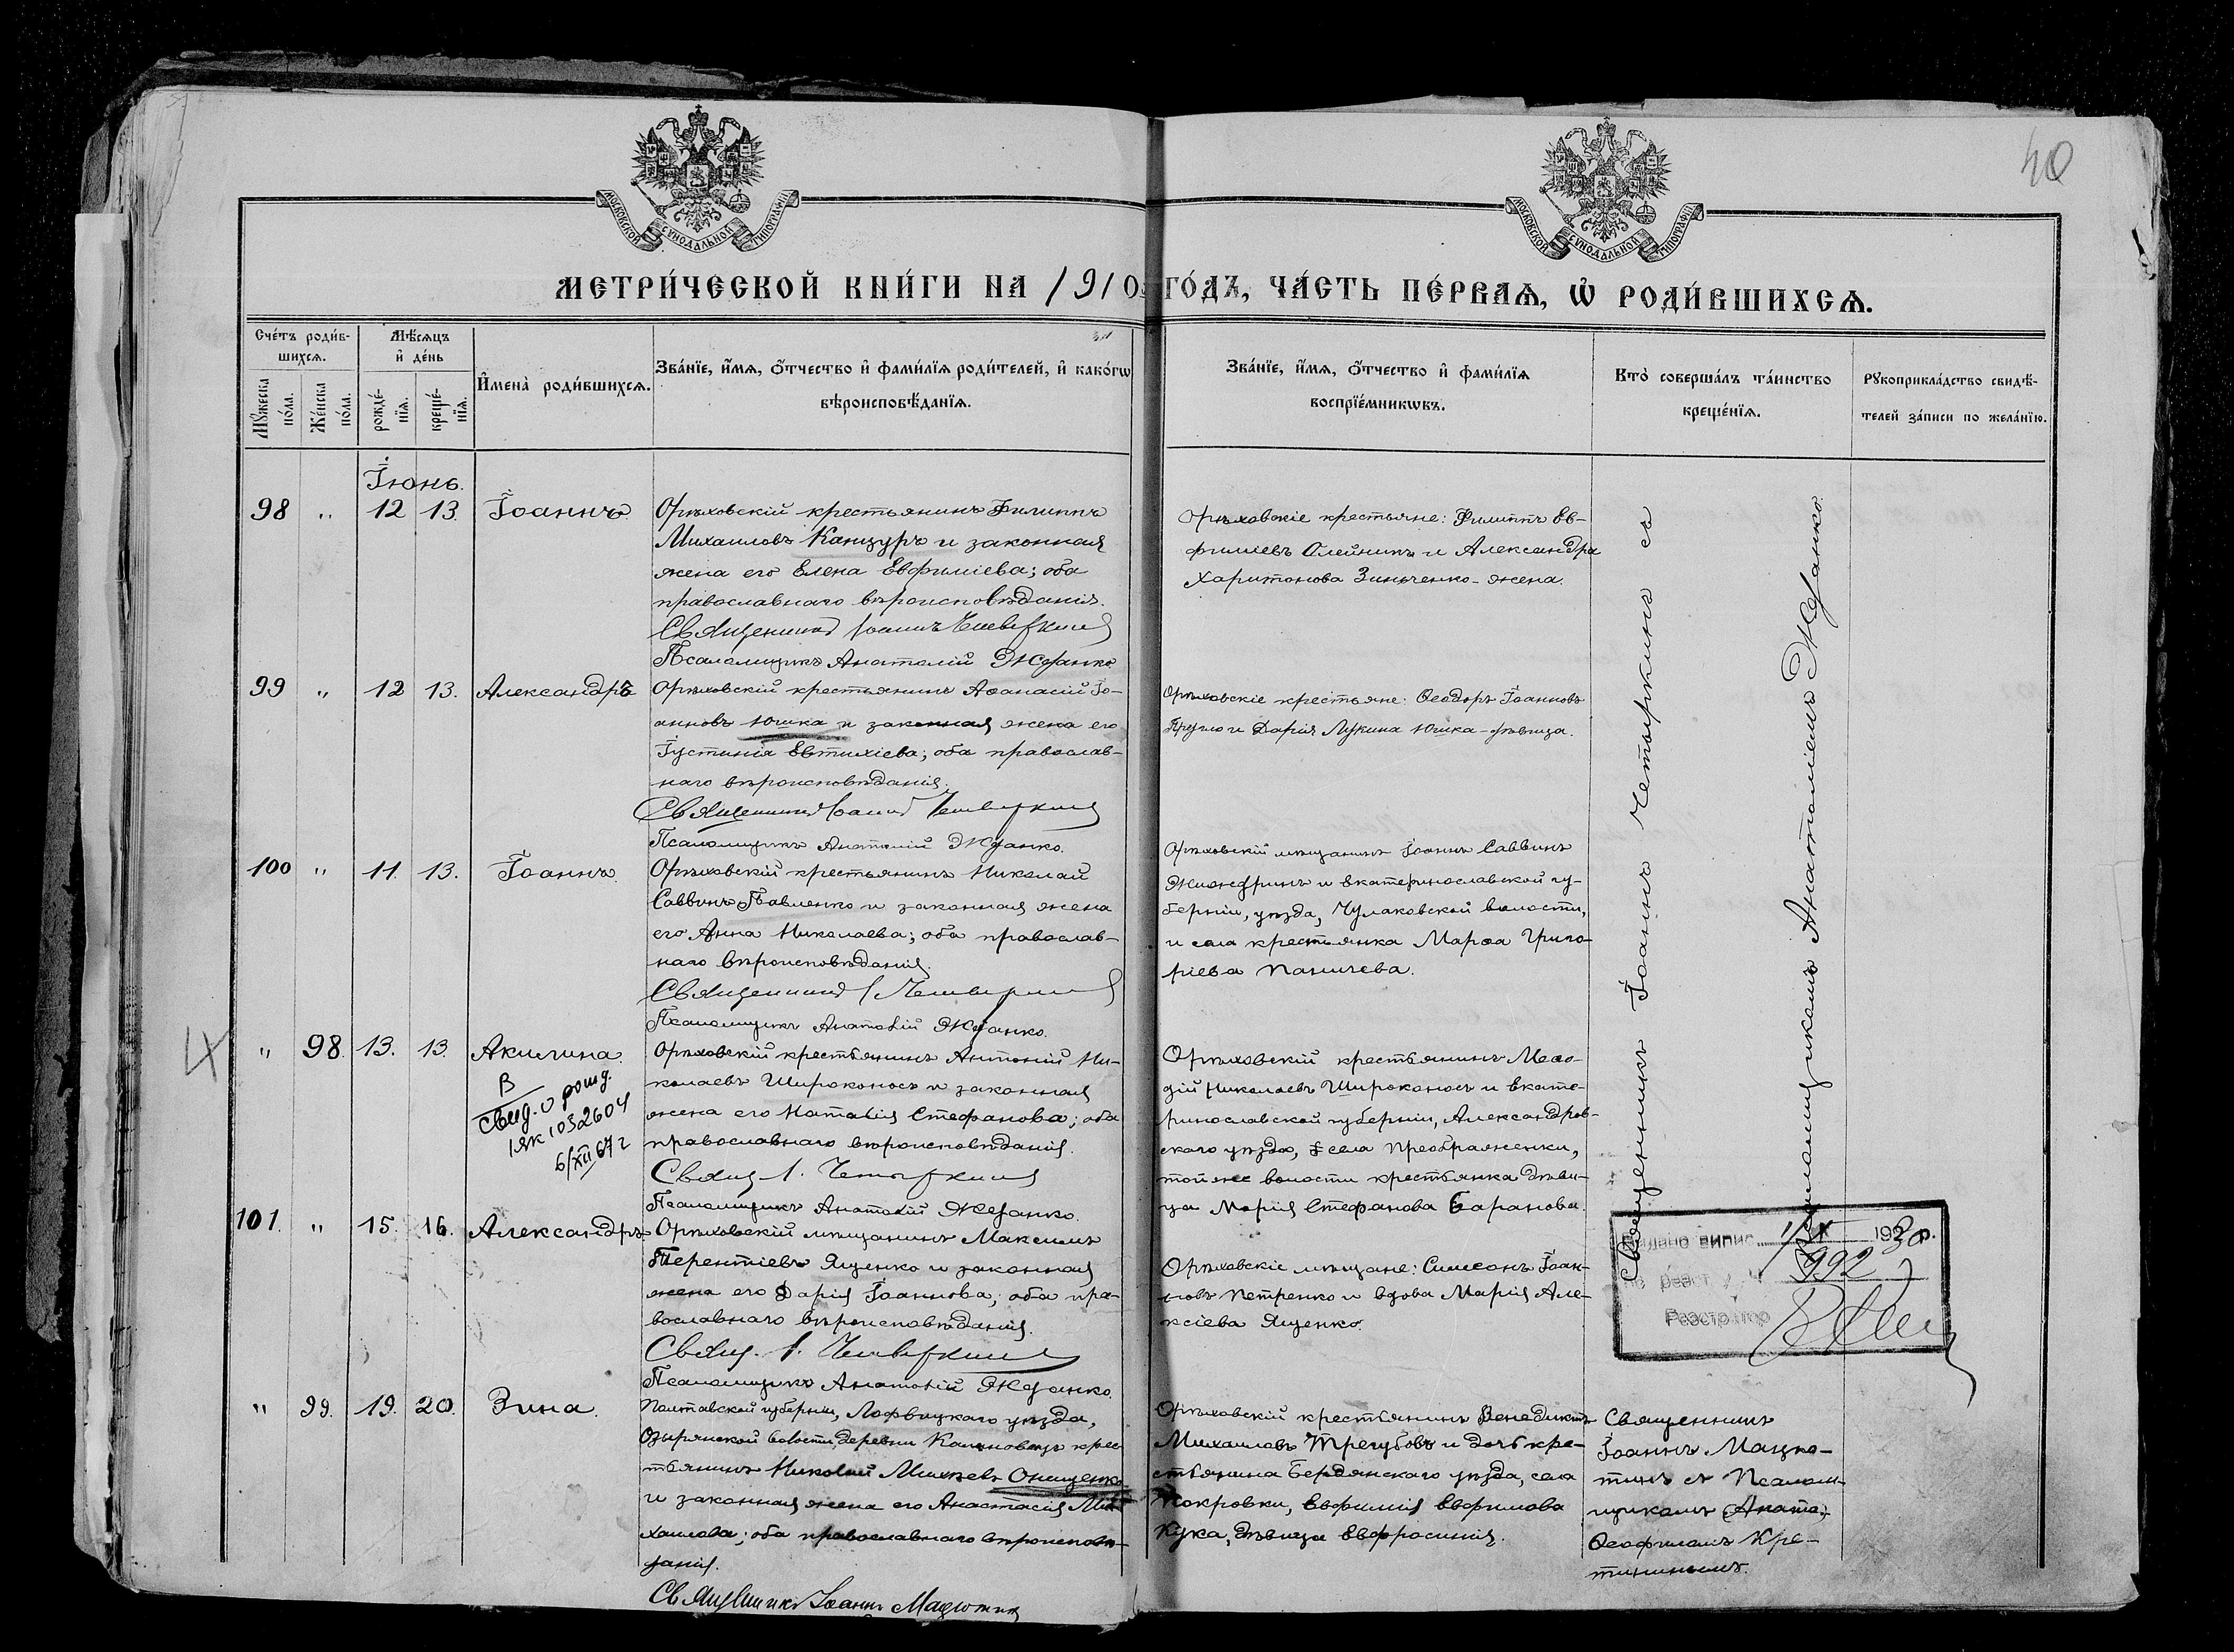 40
МОСКОВСКОЙ СУНОДАЛЬНОЙ ТИПОГРАФІИ
МОСКОВСКОЙ СУНОДАЛЬНОЙ ТИПОГРАФІИ
МЕТРИ́ЧЕСКОЙ КНИ́ГИ НА 1910 ГО́ДЪ, ЧА́СТЬ ПЕ́РВАѦ, Ѡ҆ РОДИ́ВШИХСѦ.
Сче́тъ роди́в-
шихсѧ.
Мѣ́сѧцъ
и҆ де́нь
Мꙋ́жеска по́ла.
Же́нска по́ла.
рожде́-
нїѧ.
креще́-
нїѧ.
И҆мена̀ роди́вшихсѧ.
Зва́нїе, и҆́мѧ, ѻ҆́тчество и҆ фами́лїѧ роди́телей, и҆ како́гѡ
вѣроисповѣ́данїѧ.
Зва́нїе, и҆́мѧ, ѻ҆́тчество и҆ фами́лїѧ
воспрїе́мникѡвъ.
Кто̀ соверша́лъ та́инство
креще́нїѧ.
Рꙋкоприкла́дство свидѣ́-
телей за́писи по жела́нїю.
Іюнь.
98 " 12 13. Іоаннъ.
Орѣховскій крестьянинъ Филиппъ
Михаиловъ Канцуръ и законная
жена его Елена Евфиміева; оба
православнаго вѣроисповѣданія.
Священникъ Іоаннъ Четыркинъ
Псаломщикъ Анатолій Жданко
Орѣховскіе крестьяне: Филиппъ Ев-
фиміевъ Олейникъ и Александра
Харитонова Зинченко - жена.
99 " 12 13. Александръ
Орѣховскій крестьянинъ Аѳанасій Іо-
анновъ Юшка и законная жена его
Іустинія Евтихіева; оба православ-
наго вѣроисповѣданія.
Священникъ Іоаннъ Четыркинъ
Псаломщикъ Анатолій Жданко.
Орѣховскіе крестьяне: Ѳеодоръ Іоанновъ
и Дарія Лукина Юшка - дѣвица.
100 " 11. 13. Іоаннъ.
Орѣховскій крестьянинъ Николай
Саввинъ Павленко и законная жена
его Анна Николаева; оба православ-
наго вѣроисповѣданія.
Священникъ І Четыркинъ
Псаломщикъ Анатолій Жданко.
Орѣховскій мѣщанинъ Іоаннъ Саввинъ
и Екатеринославской гу-
берніи, уѣзда, Чулаковской волости,
и села крестьянка Марѳа Григо-
ріева Паничева.
" 98. 13. 13. Акилина.
В
свид. о рожд.
1032604
6/XII 67 г
Орѣховскій крестьянинъ Антоній Ни-
колаевъ Широконосъ и законная
жена его Наталія Стефанова; оба
православнаго вѣроисповѣданія.
Свящ. І. Четыркинъ
Псаломщикъ Анатолій Жданко.
Орѣховскій крестьянинъ Меѳо-
дій Николаевъ Широконосъ и Екате-
ринославской губерніи, Александров-
скаго уѣзда, села Преображенки,
той же волости крестьянка дѣви-
ца Марія Стефанова Баранова.
101. " 15. 16. Александръ.
Орѣховскій мѣщанинъ Максимъ
Терентіевъ Яценко и законная
жена его Дарія Іоаннова; оба пра-
вославнаго вѣроисповѣданія.
Свящ. І. Четыркинъ
Псаломщикъ Анатолій Жданко.
Орѣховскіе мѣщане: Симеонъ Іоан-
новъ Петренко и вдова Марія Але-
ксіева Яценко.
" 99. 19. 20. Зина.
Полтавской губерніи, Лофвицкаго уѣзда,
Озырянской волости, деревни крес
тьянинъ Николай Михѣевъ Онищенко
и законная жена его Анастасія Ми-
хаилова; оба православнаго вѣроисповѣ-
данія.
Священникъ Іоаннъ Мацютинъ
Орѣховскій крестьянинъ Венедиктъ
Михаиловъ Трегубовъ и дочь кре-
стьянина Бердянскаго уѣзда, села
Покровки, Евфимія Евфимова
Кука, дѣвица Евфросинія.
Священникъ Іоаннъ Четыркинъ съ
псаломщикомъ Анатоліемъ Жданко.
Священникъ
Іоаннъ Мацю-
тинъ съ Псалом-
щикомъ
Ѳеофиломъ Кре-
тининымъ.
Видано випис 1/IX 1930 р.
по реєст. 992
Реєстратор